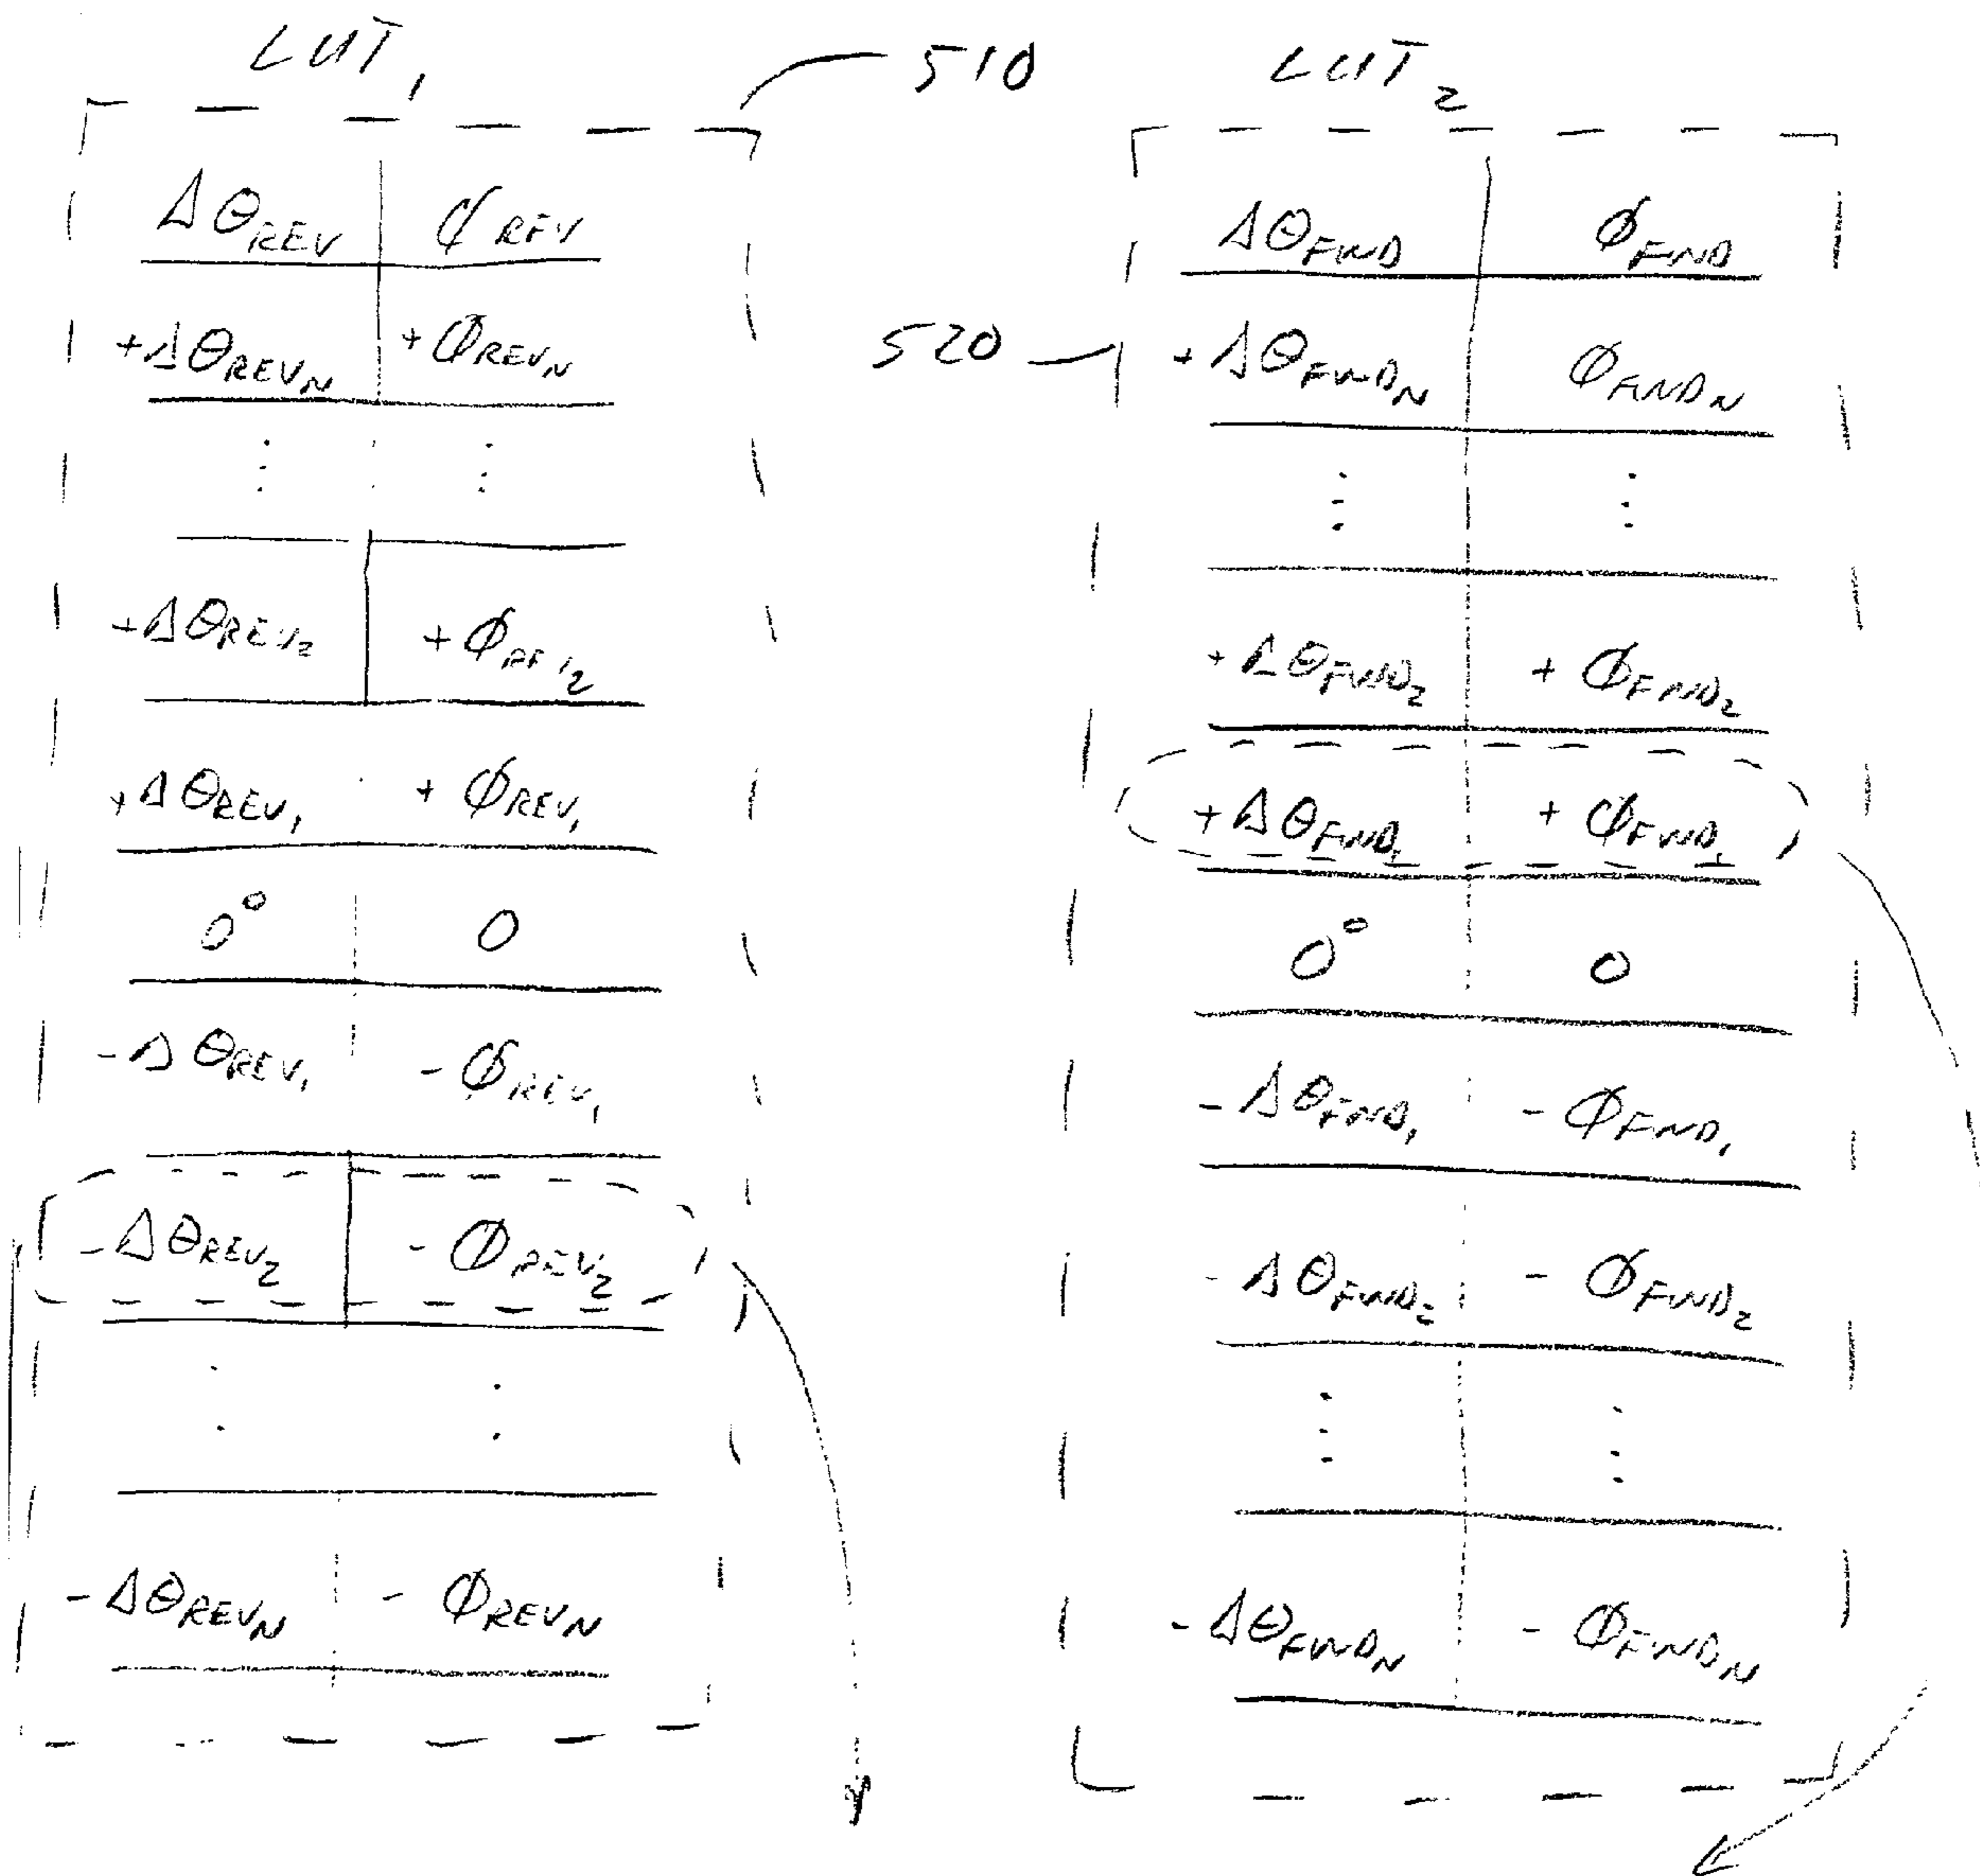 LUT₁
510
ΔΘREV ΦREV
+ΔΘREVN +ΦREVN
⋮ ⋮
+ΔΘREV2 +ΦREV2
+ΔΘREV1 + ΦREV1
0° 0
-ΔΘREV1 -ΦREV1
-ΔΘREV2 -ΦREV2
-ΔΘREVN - ΦREVN
LUT₂
520
ΔΘFWD ΦFWD
+ΔΘFWDN ΦFWDN
⋮ ⋮
+ΔΘFWD2 + ΦFWD2
+ΔΘFWD1 + ΦFWD1
0° 0
-ΔΘFWD1 - ΦFWD1
-ΔΘFWD2 - ΦFWD2
⋮ ⋮
-ΔΘFWDN - ΦFWDN